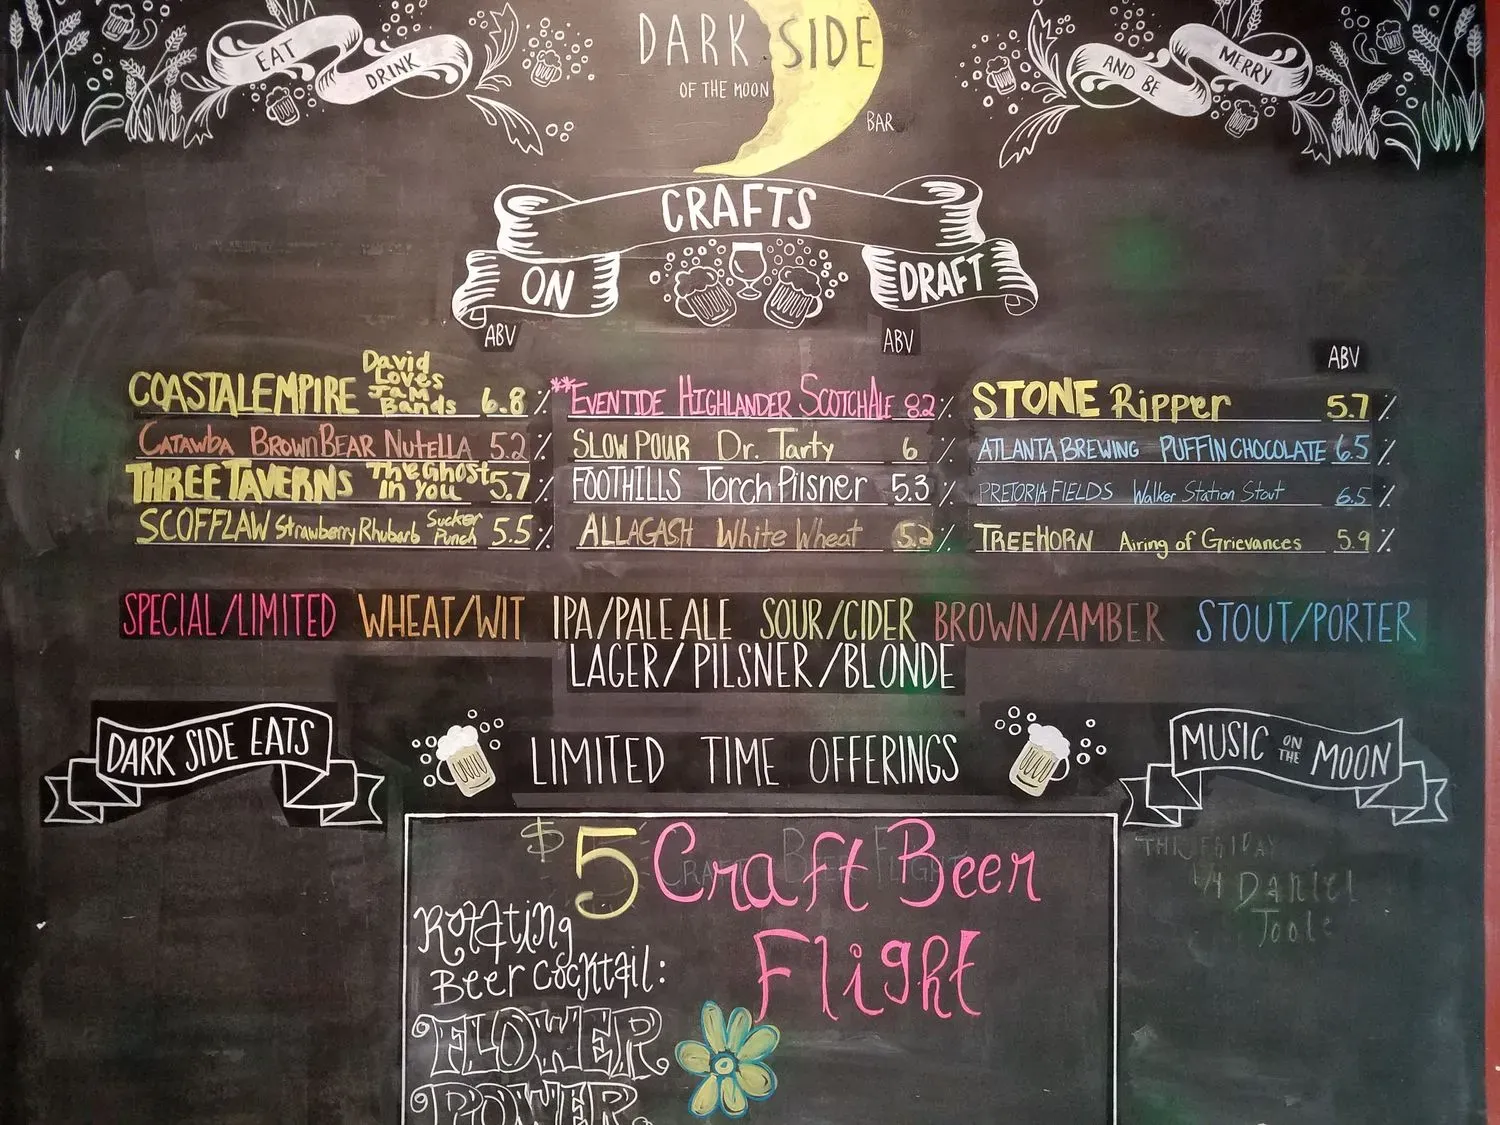 EAT DRINK
DARK SIDE
OF THE MOON
BAR
AND BE MERRY
CRAFTS
ON DRAFT
ABV
ABV
ABV
COASTAL EMPIRE David Loves Jam Bands 6.8 %
CATAWBA BROWN BEAR NUTELLA 5.2 %
THREE TAVERNS The Ghost In You 5.7 %
SCOFFLAW Strawberry Rhubarb Sucker Punch 5.5 %
**EVENTIDE HIGHLANDER SCOTCH ALE 8.2 %
SLOW POUR Dr. Tarty 6 %
FOOTHILLS Torch Pilsner 5.3 %
ALLAGASH White Wheat 5.2 %
STONE Ripper 5.7 %
ATLANTA BREWING PUFFIN CHOCOLATE 6.5 %
PRETORIA FIELDS Walker Station Stout 6.5 %
TREEHORN Airing of Grievances 5.9 %
SPECIAL/LIMITED WHEAT/WIT IPA/PALE ALE SOUR/CIDER BROWN/AMBER STOUT/PORTER
LAGER/PILSNER/BLONDE
DARK SIDE EATS
LIMITED TIME OFFERINGS
MUSIC ON THE MOON
$5 Craft Beer
Flight
Rotating
Beer Cocktail:
FLOWER
POWER
CRAFT BEER FLIGHT
THIS FRIDAY
1/4 Daniel
Toole